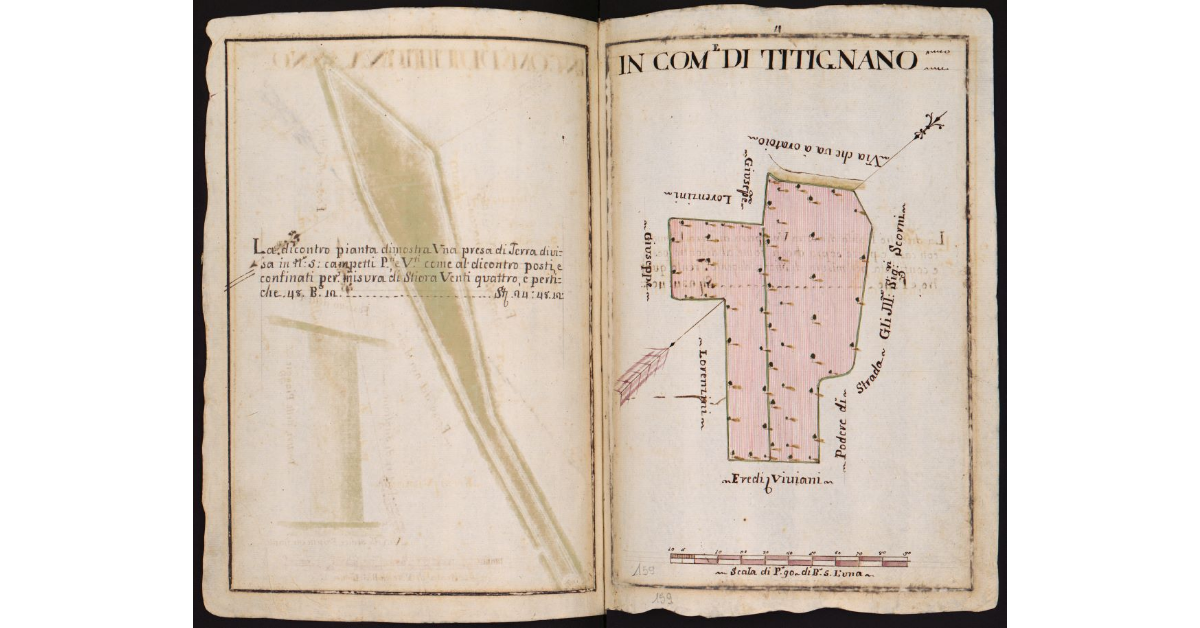 La dicontro pianta dimostra Vna presa di Terra divi-
sa in N.º 5: campetti P.ti e V.ti come al dicontro posti, e
confinati per misura di Stiora Venti quattro, e perti-
che 48. B. 12. St. 24: 48. 12:
11
IN COM.E DI TITIGNANO
Via che uà à oratoio
Giuseppe
Lorenzini
Giuseppe
Lorenzini
Gli Ill.mi Sig.ri Scorni
Strada
Podere di
Eredi Viuiani
10 20 30 40 50 60 70 80 90
Scala di P. 90 di B. 5. L'una
159
159